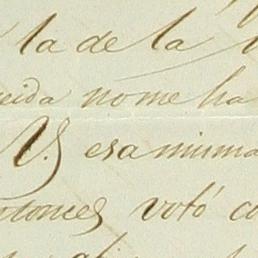 la de la
eida no me ha
V.S esa misma
ntonces votó co